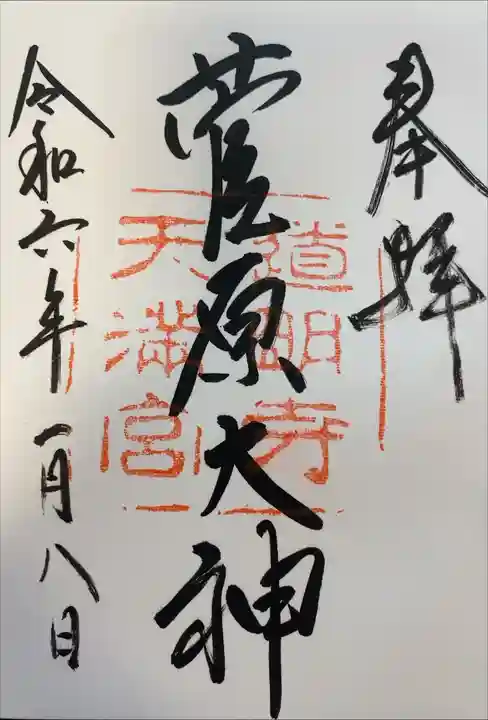 奉拝
菅原大神
道明寺
天満宮
令和六年一月八日